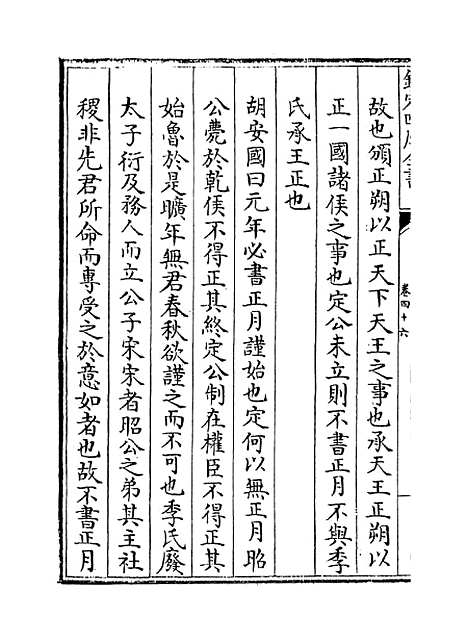 欽定四庫全書
卷四十六
故也頒正朔以正天下天王之事也承天王正朔以
正一國諸侯之事也定公未立則不書正月不與季
氏承王正也
胡安國曰元年必書正月謹始也定何以無正月昭
公薨於乾侯不得正其終定公制在權臣不得正其
始魯於是曠年無君春秋欲謹之而不可也季氏廢
太子衍及務人而立公子宋宋者昭公之弟其主社
稷非先君所命而專受之於意如者也故不書正月